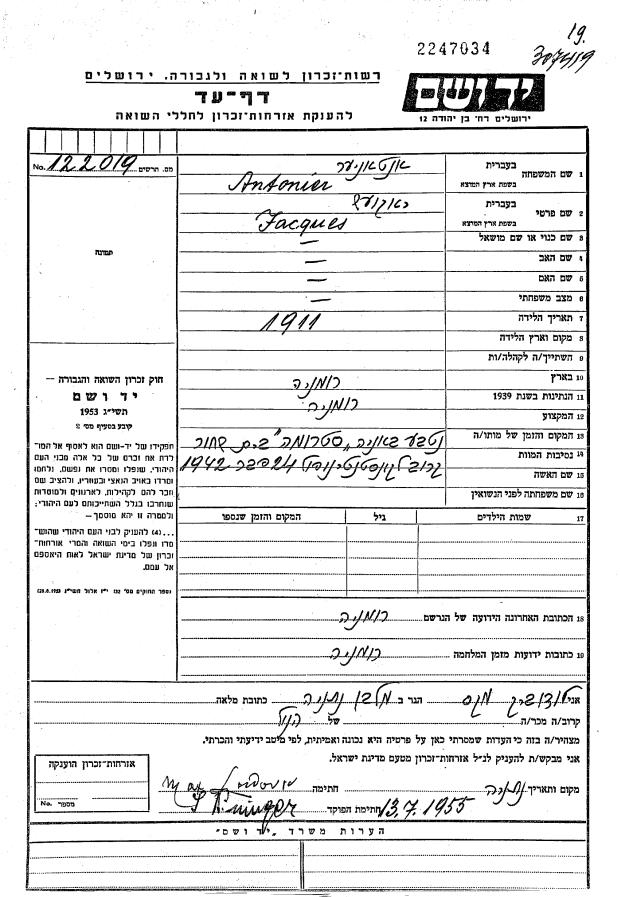 19.
2247034
307419
רשות-זכרון לשואה ולגבורה, ירושלים
דף-עד
להענקת אזרחות-זכרון לחללי השואה
יד ושם
ירושלים רח' בן יהודה 12
No. 122019 מס. תרשים
תמונה
1 שם המשפחה בעברית אנטאניער
בשפת ארץ המוצא Antonier
2 שם פרטי בעברית
בשפת ארץ המוצא Jacques
3 שם כנוי או שם מושאל —
4 שם האב —
5 שם האם —
6 מצב משפחתי —
7 תאריך הלידה 1911
8 מקום וארץ הלידה
9 השתייך/ה לקהלה/ות
10 בארץ רומניה
11 הנתינות בשנת 1939 רומניה
12 המקצוע
13 המקום והזמן של מותו/ה נטבע באוניה "סטרומה" בים שחור
14 נסיבות המוות קרוב לקונסטנטינופול 24 פבר 1942
15 שם האשה
16 שם משפחתה לפני הנשואין
17 שמות הילדים גיל המקום והזמן שנספו
חוק זכרון השואה והגבורה —
יד ושם
תשי"ג 1953
קובע בסעיף מס' 2
תפקידו של יד-ושם הוא לאסוף אל המו-
לדת את זכרם של כל אלה מבני העם
היהודי, שנפלו ומסרו את נפשם, נלחמו
ומרדו באויב הנאצי ובעוזריו, ולהציב שם
וזכר להם לקהילות, לארגונים ולמוסדות
שנחרבו בגלל השתייכותם לעם היהודי;
ולמטרה זו יהא מוסמך—
...(4) להעניק לבני העם היהודי שהוש-
מדו ונפלו בימי השואה והמרי אזרחות-
זכרון של מדינת ישראל לאות היאספם
אל עמם.
(ספר החוקים מס' 132 י"ז אלול תשי"ג 28.8.1953)
18 הכתובת האחרונה הידועה של הנרשם רומניה
19 כתובות ידועות מזמן המלחמה רומניה
אני לודוביק מקס הגר ב מלבן נתניה כתובת מלאה
קרוב/ה מכר/ה של הנ"ל
מצהיר/ה בזה כי העדות שמסרתי כאן על פרטיה היא נכונה ואמיתית, לפי מיטב ידיעתי והכרתי.
אני מבקש/ת להעניק לנ"ל אזרחות-זכרון מטעם מדינת ישראל.
מקום ותאריך נתניה חתימה
13.7.1955 חתימת הפוקד
אזרחות-זכרון הוענקה
No. מספר
הערות משרד "יד ושם"